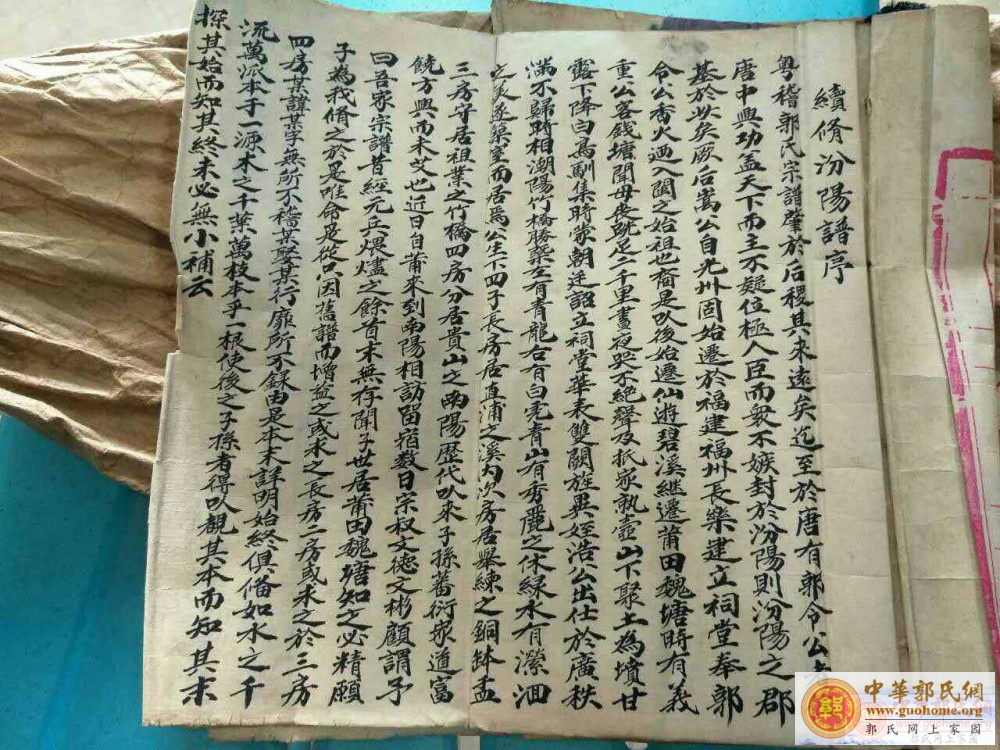 續脩汾陽譜序
粤稽郭氏宗譜肇於后稷其来遠矣迄至於唐有郭令公
唐中興功盖天下而主不疑位極人臣而衆不嫉封於汾陽則汾陽之郡
基於此矣厥后嵩公自光州固始遷於福建福州長樂建立祠堂奉郭
令公香火迺入閩之始祖也裔是以後始遷仙遊碧溪継遷莆田魏塘時有義
重公客錢塘聞母喪跣足二千里晝夜哭不絶聲及扺家執壺山下聚土為墳甘
露下降白烏馴集時蒙朝廷詔立祠堂華表雙闕旌異姪浩公出仕於廣秩
滿不歸時相潮陽竹橋勝槩左有青龍右有白虎青山有秀麗之体緑水有瀠洄
之美遂築室而居焉公生下四子長房居直浦之溪内次房居舉練之銅鉢盂
三房守居祖業之竹橋四房分居貴山之南陽歴代以來子孫蕃衍家道富
饒方興而未艾也近日自莆來到南陽相訪留宿数日宗叔文徳文彬顧謂予
曰吾家宗譜昔經元兵煨燼之餘首末無存聞子世居莆田魏塘知之必精願
子為我脩之於是唯命是從只因舊譜而增益之或求之長房二房或求之於三房
四房某諱某字無所不稽某娶某行靡所不録由是本末詳明始終俱備如水之千
流萬派本于一源木之千葉萬枝本乎一根使後之子孫者得以觀其本而知其末
探其始而知其終未必無小補云
中華郭氏網
www.guohome.org
郭氏网上家园